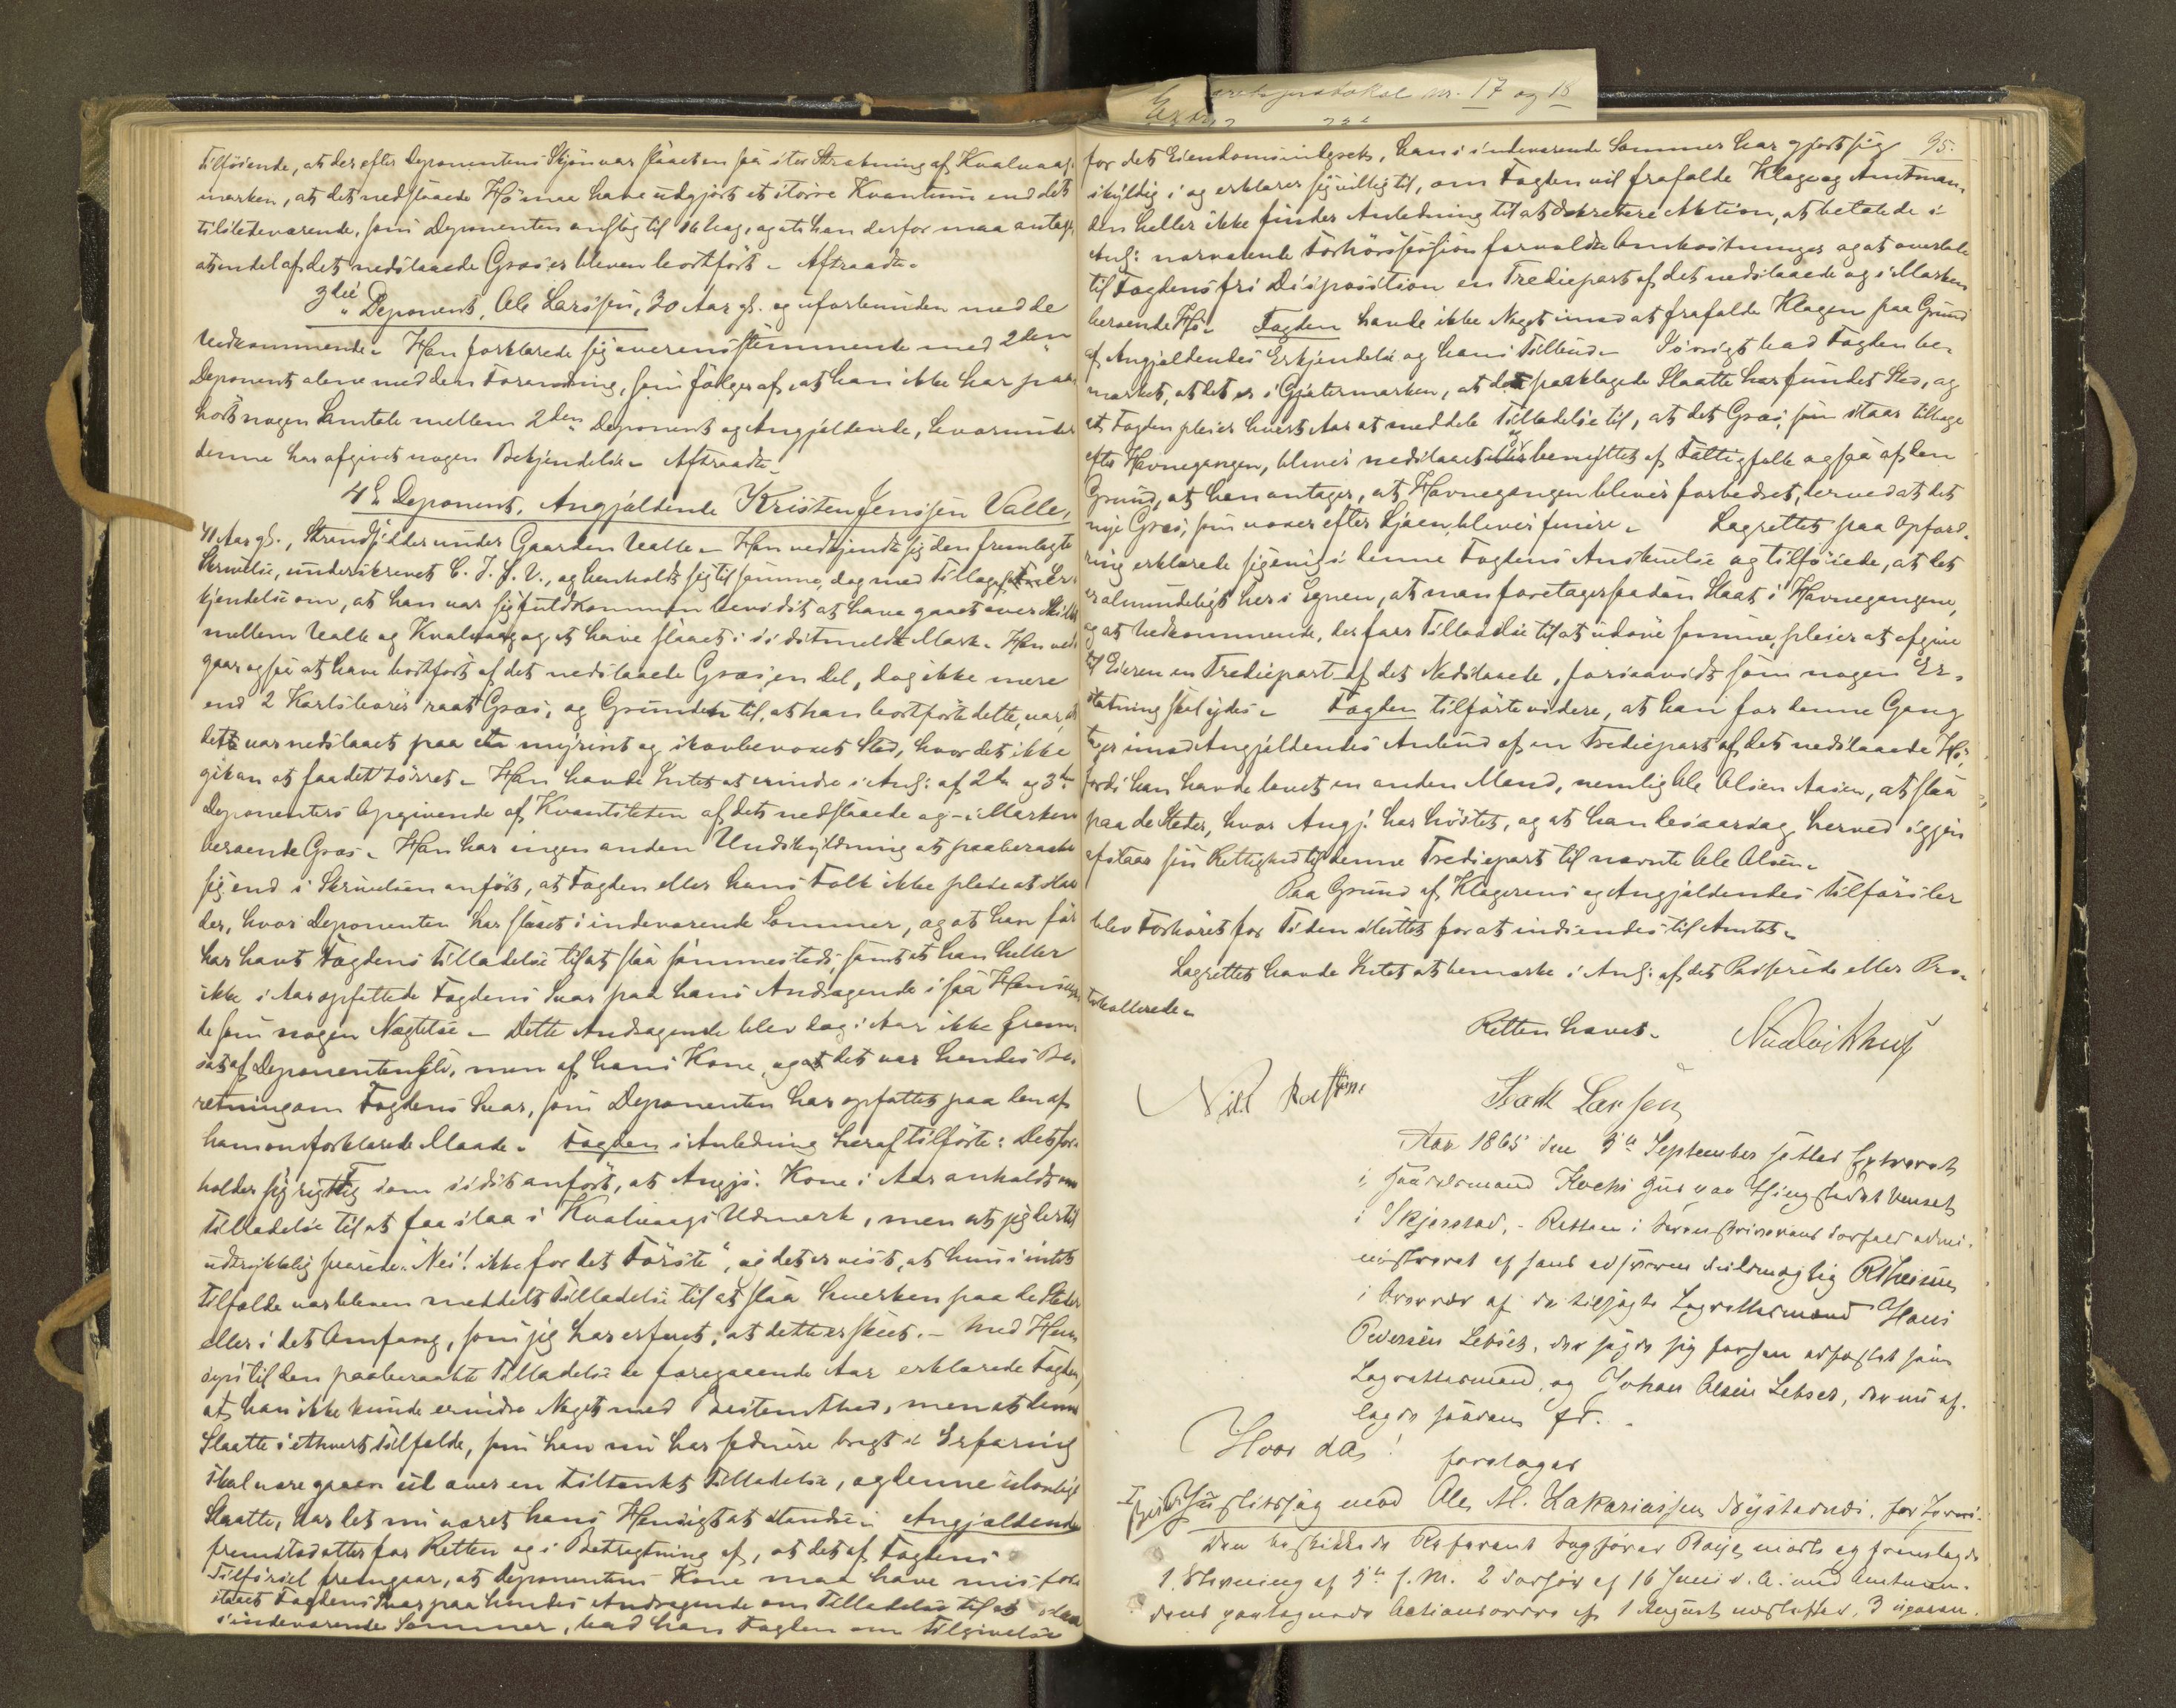 retsprotokol nr. 17 og 18
tilföiende, at der efter Deponentens Skjön var slaaet en saa stor Strækning af Kvalvaag-
marken, at det nedslaaede Hö maa have udgjort et större Kvantum end det
tilstedeværende, som Deponenten anslog til 16 Vaag, og at han derfor maa antage,
at en del af det nedslaaede Græs er bleven bortfört. Aftraadte.
3die Deponent, Ole Larssen, 30 Aar gl. og uforbunden med de
Vedkommende. Han forklarede sig overensstemmende med 2den
Deponent alene med den Forandring, som fölger af, at han ikke har paa-
hört nogen Samtale mellem 2den Deponent og Angjældende, hvorunder
denne har afgivet nogen Bekjendelse. Aftraadte.
4de Deponent, Angjældende Kristen Jenssen Valle,
41 Aar gl., Strandsidder under Gaarden Valle. Han vedkjendte sig den fremlagte
Skrivelse, underskrevet C. J. J. V., og henholdt sig til samme, dog med Tillæg Er-
kjendelse om, at han var sig fuldkommen bevidst at have gaaet over Skillet
mellem Valle og Kvalvaag og at have slaaet i sidstmeldte Mark. Han ved-
gaar ogsaa at have bortfört af det nedslaaede Græs en Del, dog ikke mere
end 2 Karlsbörer raat Græs, og Grunden til, at han bortförte dette, var, at
dette var nedslaaet paa et myrint og skovbevoxet Sted, hvor det ikke
gik an at faa det törret. Han havde Intet at erindre i Anl: af 2den og 3die
Deponenters Opgivende af Kvantiteten af det nedslaaede og i Marken
beroende Græs. Han har ingen anden Undskyldning at paaberaabe
sig end i Skrivelsen anfört, at Fogden eller hans Folk ikke pleie at slaa
der, hvor Deponenten har slaaet i indeværende Sommer, og at han för
har havt Fogdens Tilladelse til at slaa sammesteds, samt at han heller
ikke i Aar opfattede Fogdens Svar paa hans Andragende i saa Henseen-
de som nogen Nægtelse. Dette Andragende blev dog i Aar ikke frem-
sat af Deponenten selv, men af hans Kone, og at det var hendes Be-
retning om Fogdens Svar, som Deponenten har opfattet paa den af
ham omforklarede Maade. Fogden i Anledning heraf tilförte: Det for-
holder sig rigtig som sidst anfört, at Angjs. Kone i Aar anholdt om
Tilladelse til at faa slaa i Kvalvaags Udmark, men at jeg dertil
udtrykkelig svarede "Nei! ikke for det Förste", og det er vist, at hun i intet
Tilfælde var bleven meddelt Tilladelse til at slaa hverken paa de Steder
eller i det Omfang, som jeg har erfaret, at dette er skeet. Med Hen-
syn til den paaberaabte Tilladelse de foregaaende Aar erklærede Fogden,
at han ikke kunde erindre Noget med Bestemthed, men at denne
Slaatte i ethvert Tilfælde, som han nu har senere bragt i Erfaring
skal være gaaen ud over en tiltænkt Tilladelse, og denne ulovlige
Slaatte, har det nu været hans Hensigt at standse. Angjældende
fremstod atter for Retten og i Betragtning af, at det af Fogdens
Tilförsel fremgaar, at Deponentens Kone maa have misfor-
staaet Fogdens Svar paa hendes Andragende om Tilladelse til at slaa
i indeværende Sommer, bad han Fogden om Tilgivelse
95.
for det Eiendomsindgreb, han i indeværende Sommer har gjort sig
skyldig i og erklærer sig villig til, om Fogden vil frafalde Klage og Amtman-
den heller ikke finder Anledning til at dekretere Aktion, at betale de i
Anl: nærværende Forhörssession forvoldte Omkostninger og at overlade
til Fogdens fri Disposition en Trediepart af det nedslaaede og i Marken
beroende Hö. Fogden havde ikke Noget imod at frafalde Klagen paa Grund
af Angjældendes Erkjendelse og hans Tilbud. Iövrigt bad Fogden be-
mærket, at det er i Gjætermarken, at den paaklagede Slaatte har fundet Sted, og
at Fogden pleier hvert Aar at meddele Tilladelse til, at det Græs, som staar tilbage
efter Havnegangen, bliver nedslaaet og benyttet af Fattigfolk ogsaa af den
Grund, at han antager, at Havnegangen bliver forbedret, derved at det
nye Græs, som voxer efter Ljaaen, bliver finere. Lagrettet paa Opford-
ring erklærede sig enig i denne Fogdens Anskuelse og tilföiede, at det
er almindeligt her i Egnen, at man foretager saadan Slaat i Havnegangene,
og at Vedkommende, der faar Tilladelse til at udöve samme, pleier at afgive
til Eieren en Trediepart af det Nedslaaede, forsaavidt som nogen Er-
statning skal ydes. Fogden tilförte videre, at han for denne Gang
tager imod Angjældendes Anbud af en Trediepart af det nedslaaede Hö,
fordi han havde lovet en anden Mand, nemlig Ole Olsen Aasen, at slaa
paa de Steder, hvor Angj. har höstet, og at han herved igjen
afstaar sin Rettighed til denne Trediepart til nævnte Ole Olsen.
Paa Grund af Klagerens og Angjældendes Tilförsler
blev Forhöret for Tiden sluttet for at indsendes til Amtet.
Lagrettet havde Intet at bemærke i Anl: af det Passerede eller Pro-
tokollerede.
Retten hævet.
Nils
Isack Larsen
Aar 1865 den 5te September sattes Extraret
i Gaardmand Hus paa
i Skjerstad, - Retten i Sorenskriverens Forfald admi-
nistreret af hans edsvorne Fuldmægtig
i Overvær af de tilsagte Lagrettesmænd Hans
Pedersen Letsæt, der sagde sig forhen edfæstet som
Lagrettesmand, og Johan Olsen Letset, der nu af-
lagde saadan Ed.
Hvor da!
foretoges
Justitssag mod Ole M. Zakariassen
Den beskikkede Referent Sagförer mödte og fremlagde
1 Stevning af 5te f. M. 2 Forhör af 16 Juni d. A. med Amtman-
dens paategnede Actionsordre af 1 August næstefter, 3